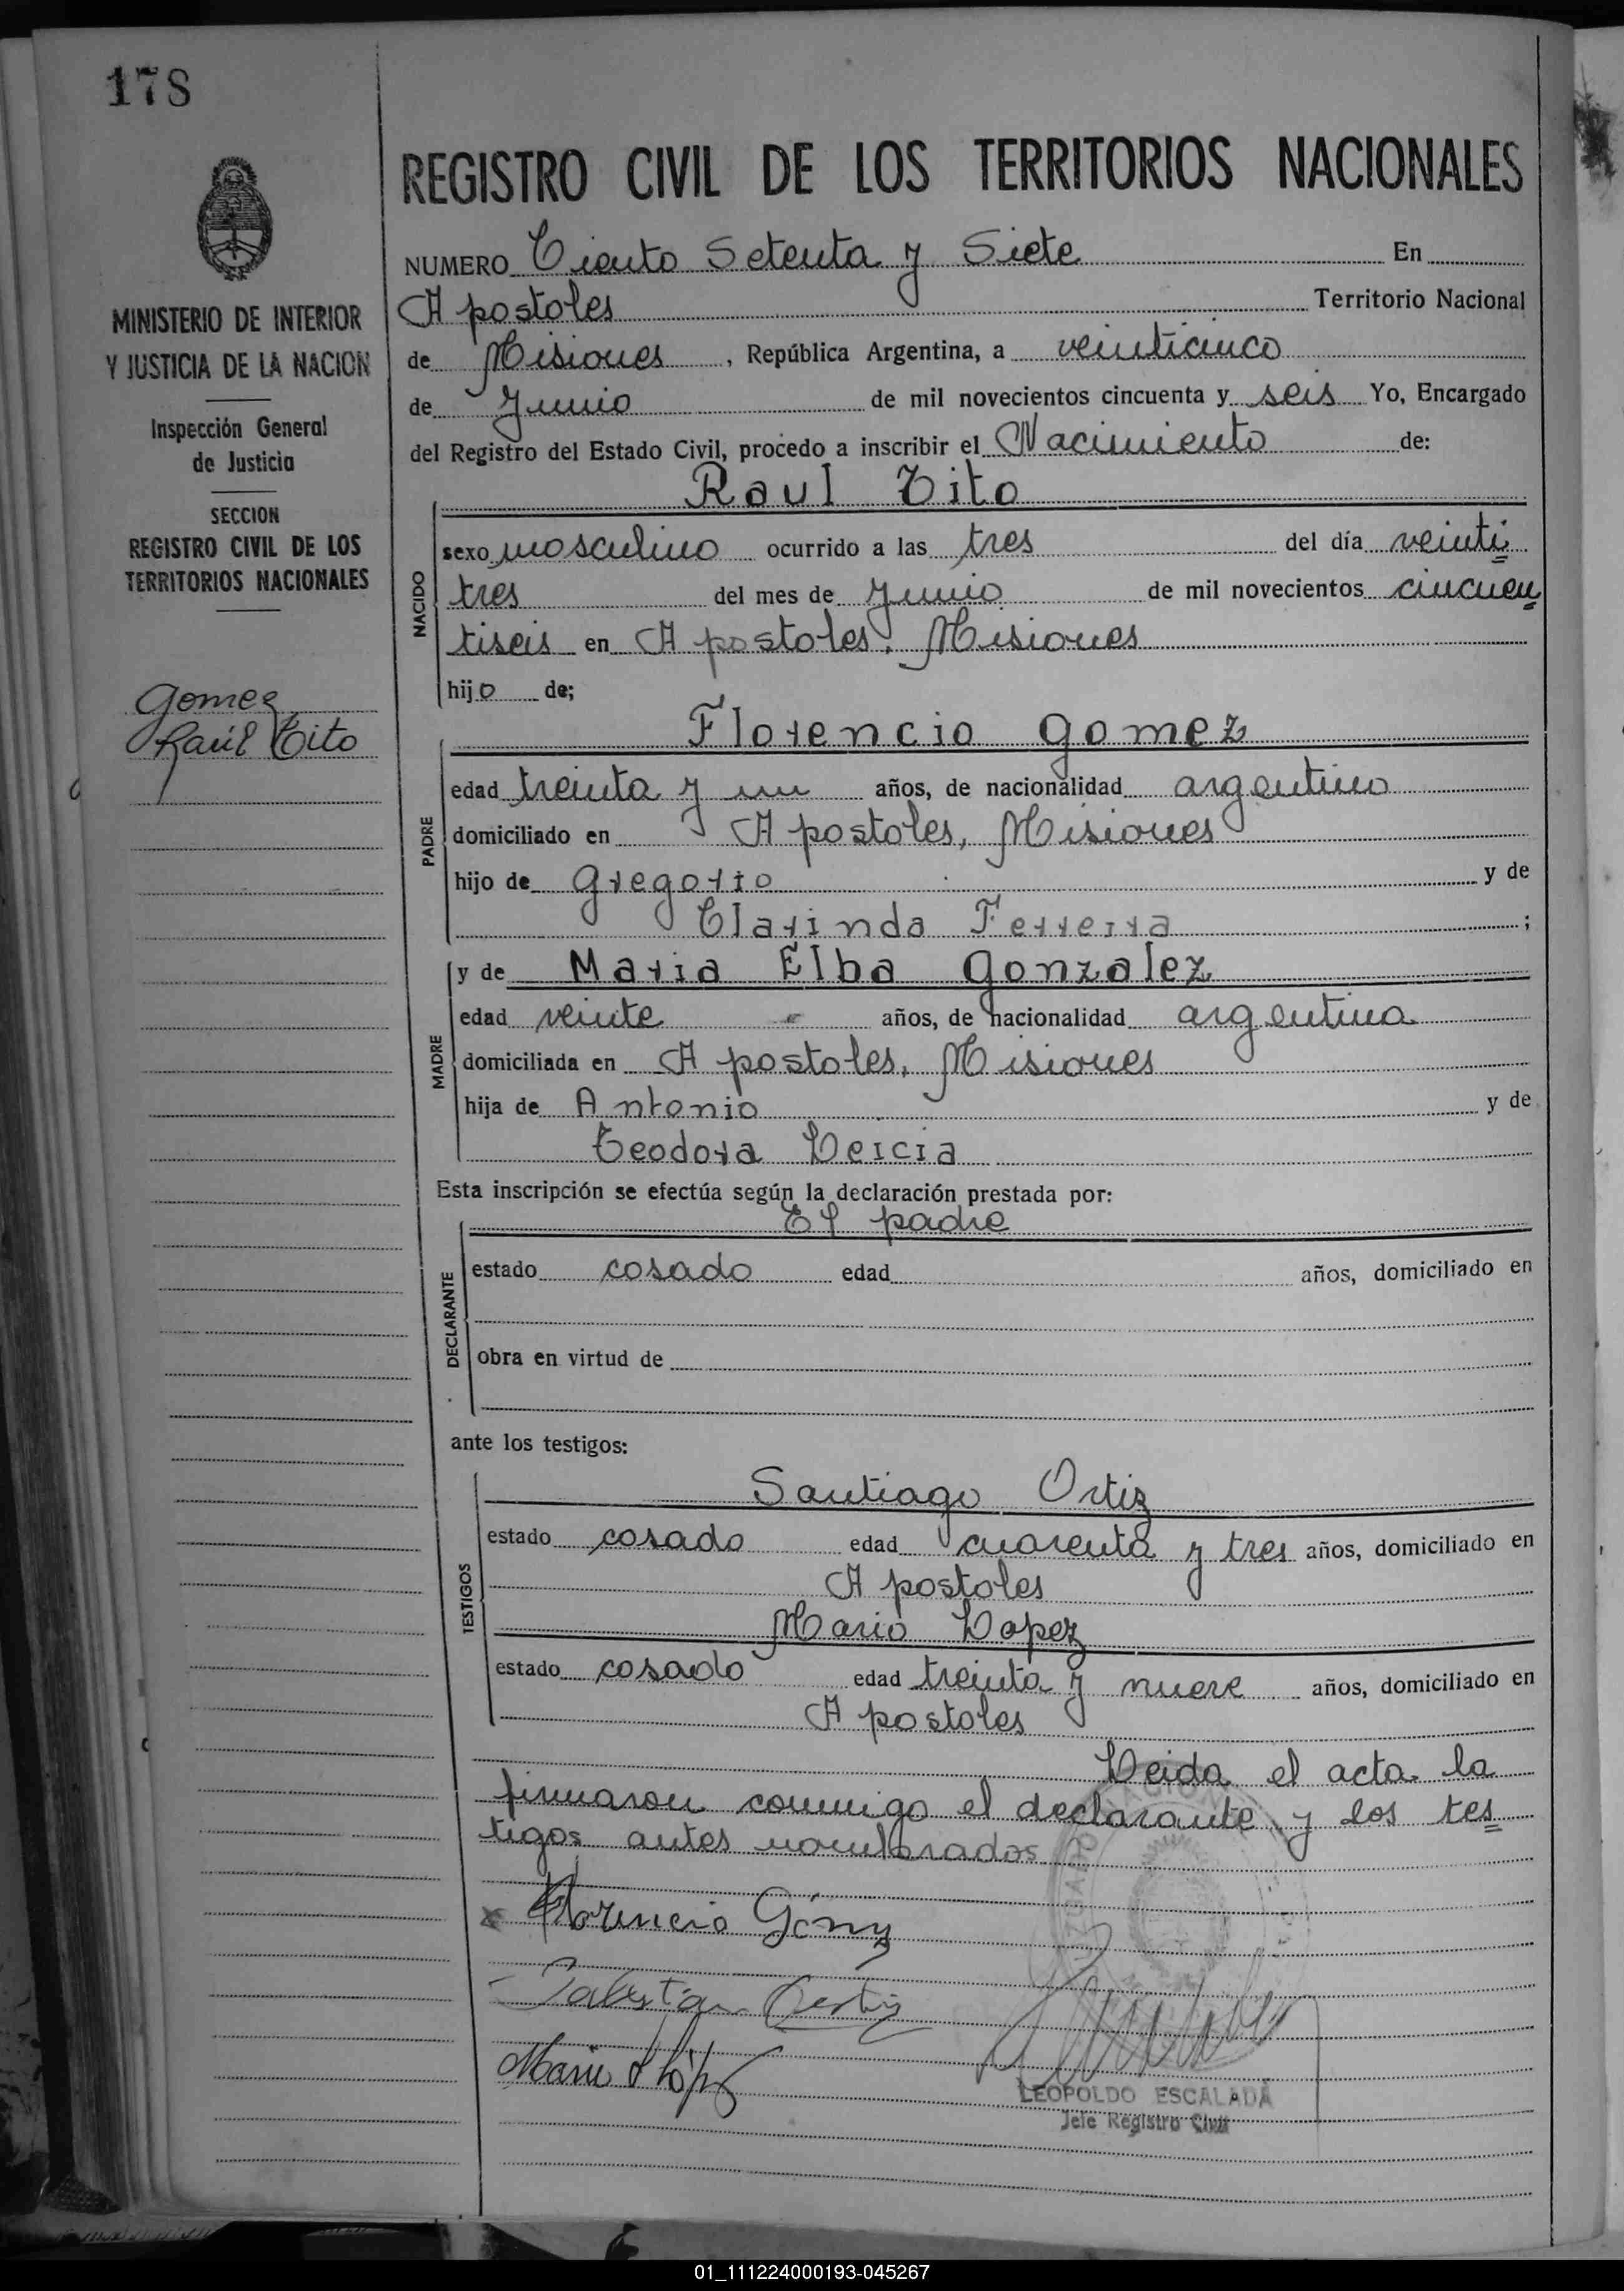 178
REGISTRO CIVIL DE LOS TERRITORIOS NACIONALES
MINISTERIO DE INTERIOR
Y JUSTICIA DE LA NACION
Inspección General
de Justicia
SECCION
REGISTRO CIVIL DE LOS
TERRITORIOS NACIONALES
Gomez
Raúl Tito
NUMERO Ciento Setenta y Siete En
Apostoles Territorio Nacional
de Misiones, República Argentina, a veinticinco
de Junio de mil novecientos cincuenta y seis Yo, Encargado
del Registro del Estado Civil, procedo a inscribir el Nacimiento de:
Raul Tito
NACIDO
sexo masculino ocurrido a las tres del día veinti
tres del mes de Junio de mil novecientos cincuen
tiseis en Apostoles, Misiones
hijo de;
Florencio Gomez
PADRE
edad treinta y un años, de nacionalidad argentino
domiciliado en Apostoles, Misiones
hijo de Gregorio y de
Clarinda Ferreira;
MADRE
y de Maria Elba Gonzalez
edad veinte años, de nacionalidad argentina
domiciliada en Apostoles, Misiones
hija de Antonio y de
Teodora Leicia
Esta inscripción se efectúa según la declaración prestada por:
El padre
DECLARANTE
estado casado edad años, domiciliado en
obra en virtud de
ante los testigos:
Santiago Ortiz
TESTIGOS
estado casado edad cuarenta y tres años, domiciliado en
Apostoles
Mario Lopez
estado casado edad treinta y nueve años, domiciliado en
Apostoles
Leida el acta la
firmaron conmigo el declarante y los tes
tigos antes nombrados
Florencio Gómez
Ortiz
Mario López
LEOPOLDO ESCALADA
Jefe Registro Civil
01_111224000193-045267